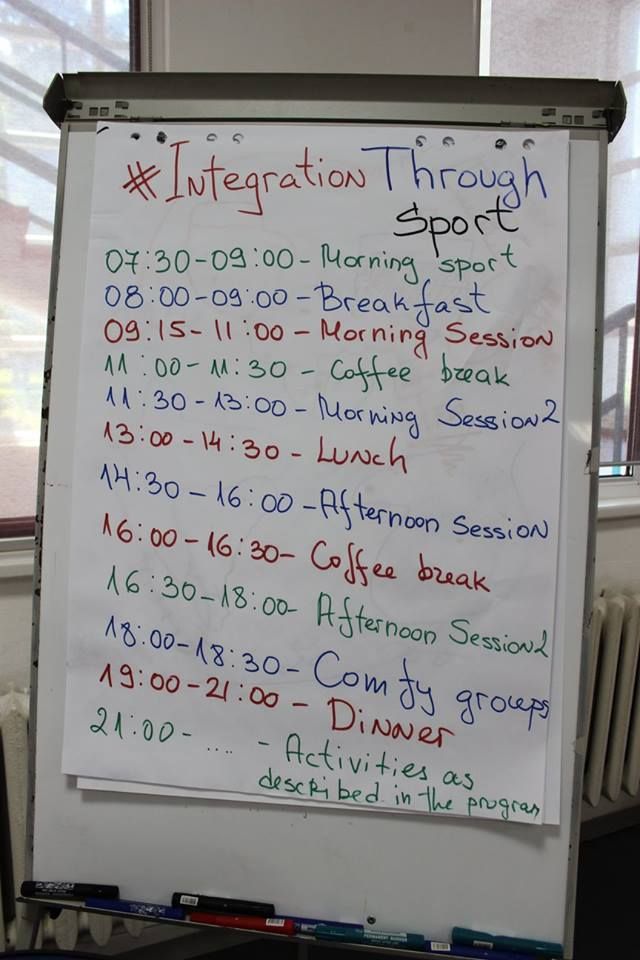 #Integration Through
Sport
07:30-09:00- Morning sport
08:00-09:00 - Breakfast
09:15-11:00 - Morning Session
11:00-11:30 - Coffee break
11:30-13:00 - Morning Session2
13:00-14:30 - Lunch
14:30-16:00 - Afternoon Session
16:00-16:30- Coffee break
16:30-18:00- Afternoon Session2
18:00-18:30 - Comfy groups
19:00-21:00 - Dinner
21:00- .... - Activities as
described in the program